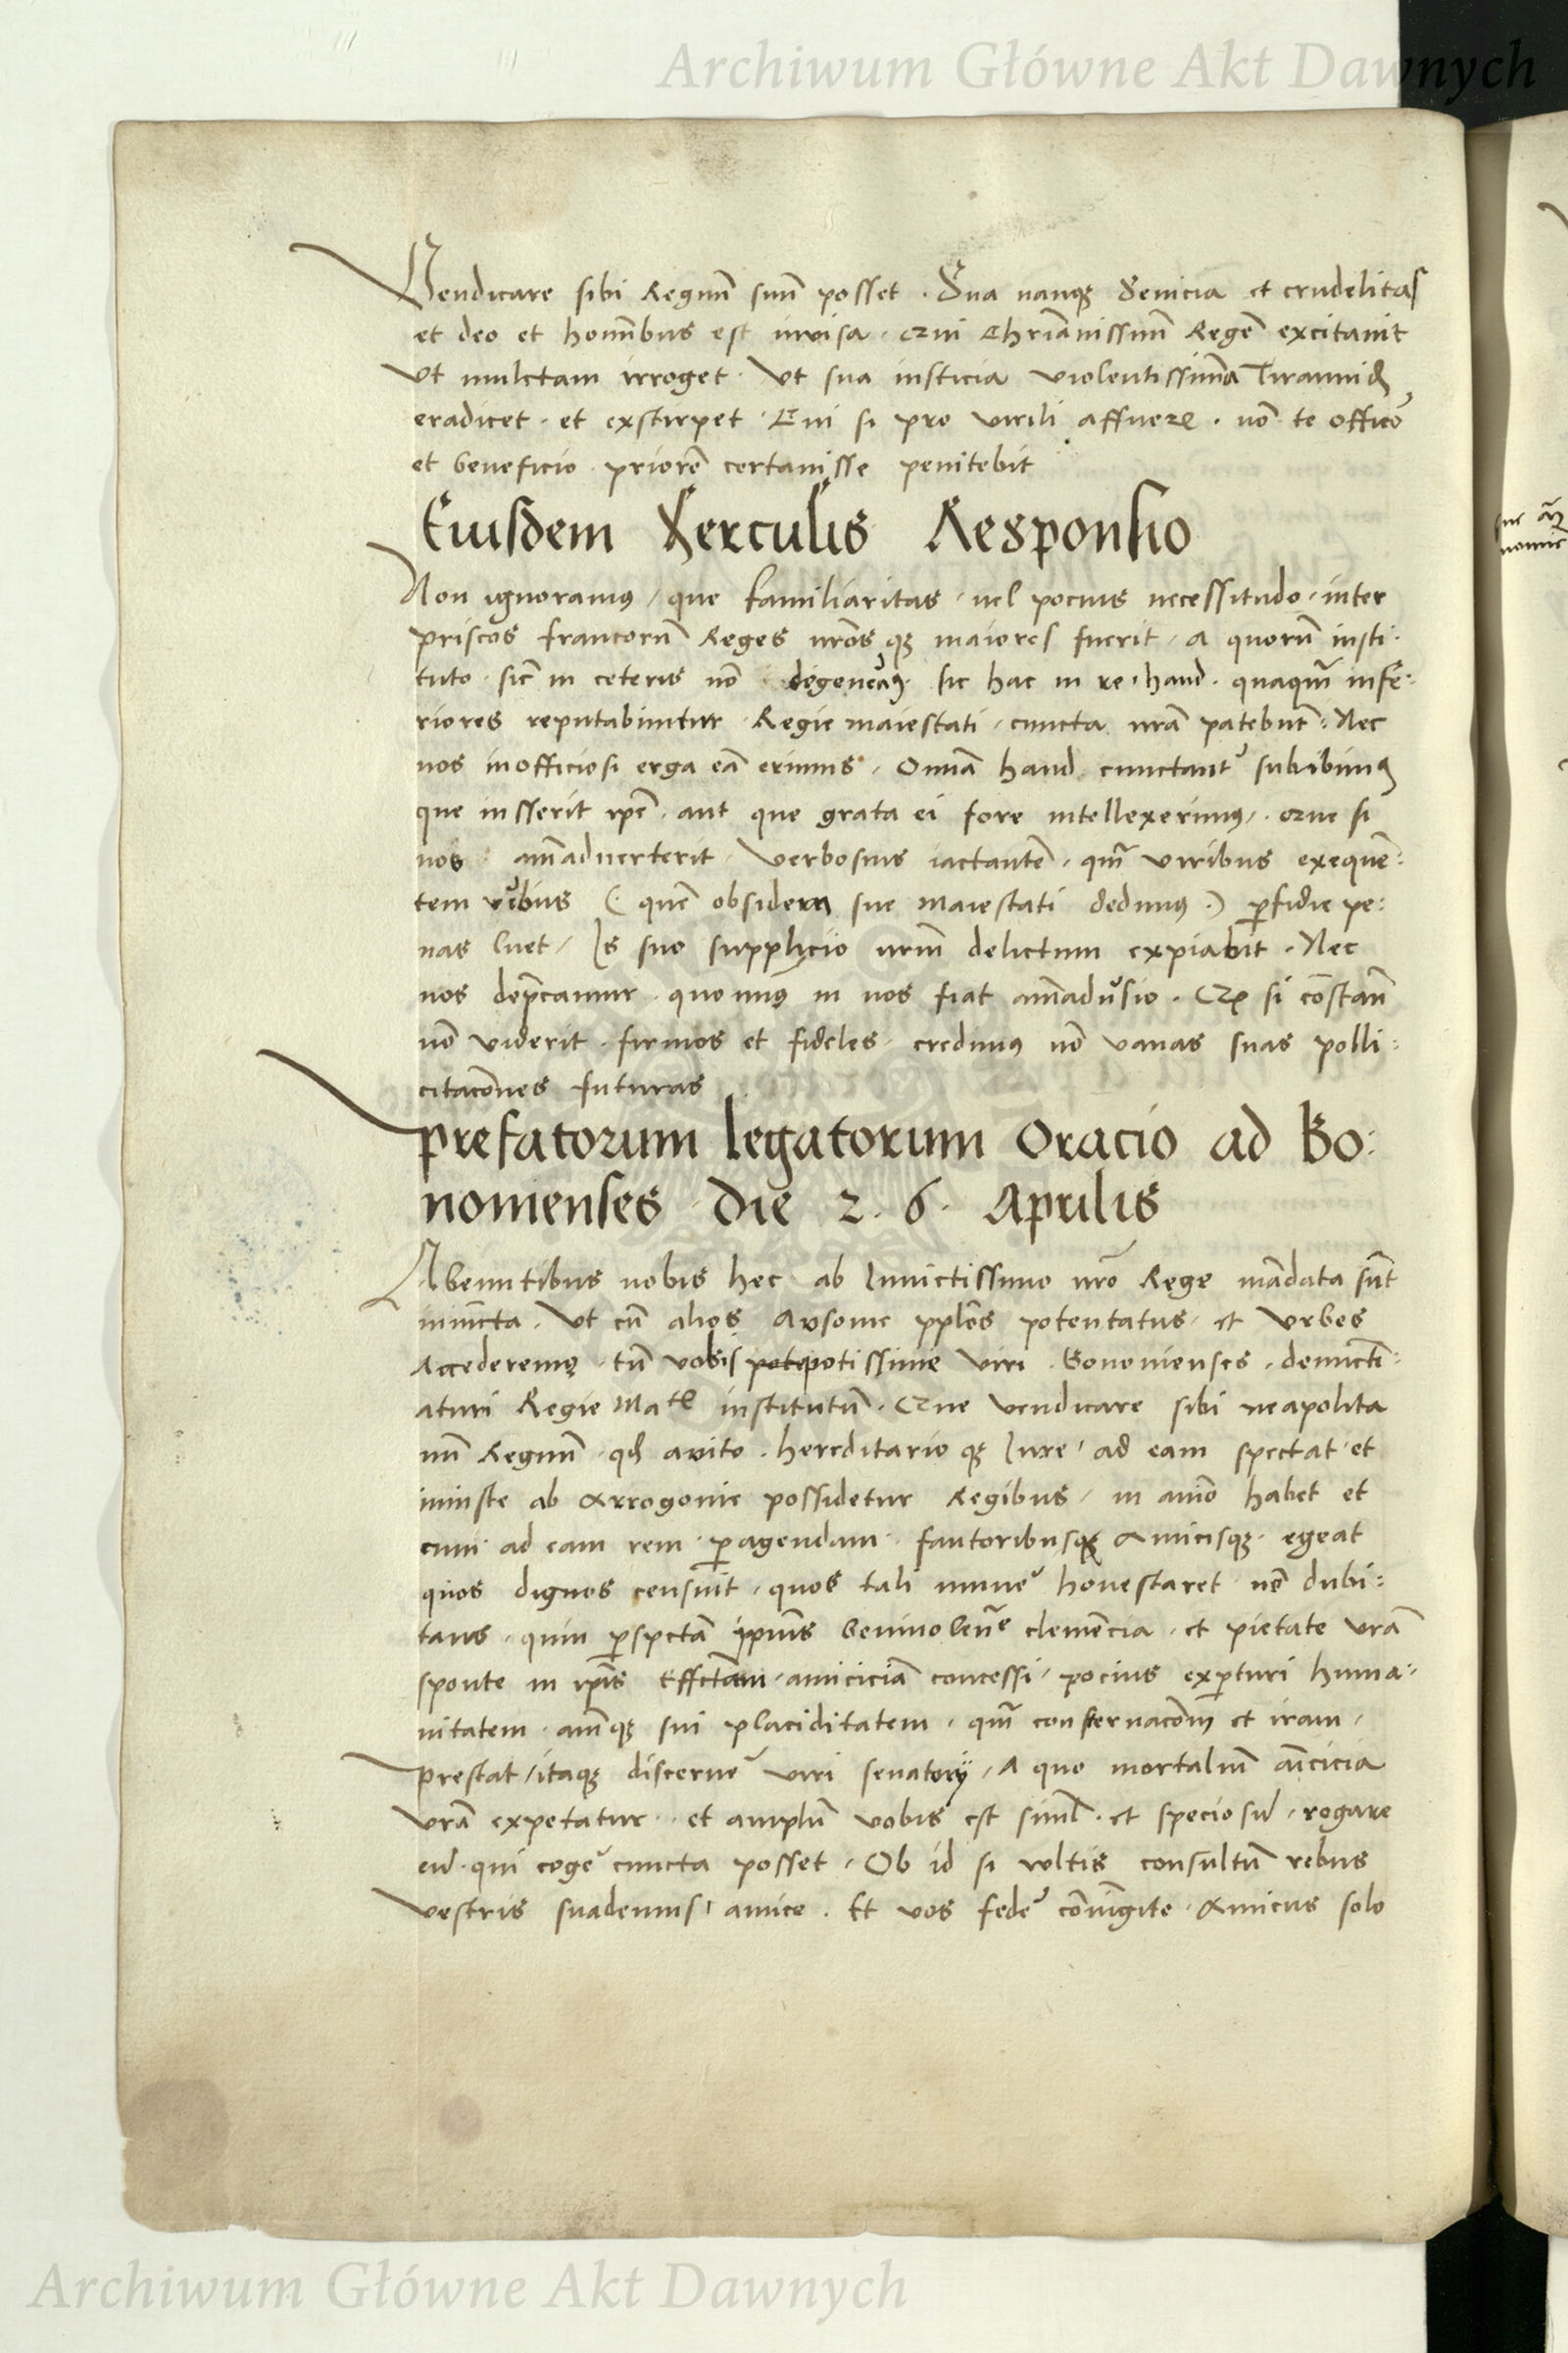 Archiwum Główne Akt Dawnych
Vendicare sibi Regnũ suũ posset . Sua nanqꝫ Seuicia et crudelitas
et deo et hominibus est inuisa . Chriãnissimũ Regẽ excitauit
Vt mulctam irroget . Vt sua iusticia violentissimã Tirannid
eradicet . et exstirpet . si pro virili affuere . nõ te officio
et beneficio priorẽ certauisse penitebit
Euisdem Herculis Responsio
Non ignoramus / que familiaritas / uel pocius necessitudo / inter
priscos francorũ Reges nrõs qꝫ maiores fuerit / a quorũ insti
tuto . sic̃ in ceteris nõ sic hac in re / haud . quaqũ infe:
riores reputabimur . Regie maiestati / cuncta nrã patebũt : Nec
nos inofficiosi erga eã erimus . Omnia haud cunctant subibimus
que iusserit ip̃e . aut que grata ei fore intellexerimus / . si
nos animaduerterit . verbosius iactantẽ . qm̃ viribus exequẽ:
tem (. quẽ obsidem sue maiestati dedimus .) ꝑfidie pe:
nas luet / Is suo supplicio nrm̃ delictum expiabit . Nec
nos dep̃camur . quo minus in nos fiat si cõstañ
nõ viderit . firmos et fideles . credimus nõ vanas suas polli:
citacões futuras
prefatorum legatorum Oracio ad Bo:
nonienses die 2. 6. Aprilis
Abeuntibus nobis hec ab Inuictissimo nrõ Rege mãdata sũt
iniũcta . Vt cũ alios Ausonie pplõs potentatus . et Vrbes
Accederemus . tũ vobis potissime Viri . Bononienses .
aturi Regie Matis institutũ . vendicare sibi neapolita
nũ Regnũ qd auito . hereditario qꝫ Iure / ad eam spectat et
iniuste ab Arrogonie possidetur Regibus / in aniõ habet et
cum ad eam rem ꝑagendam . fautoribusqꝫ Amicisqꝫ . egeat
quos dignos censuit . quos tali honestaret nõ dubi:
tans . quin ꝑspctã clemẽcia . et pietate vrã
sponte in ip̃is amiciciã concessi / pocius exꝑturi huma:
nitatem . sui placiditatem . qm̃ consternacõm et iram /
prestat / itaqꝫ discerne viri senatorij / A quo mortaliũ
vrã expetatur . et amplũ vobis est simul . et speciosũ . rogare
eũ . qui coge cuncta posset . Ob id si vultis consultũ rebus
vestris suademus / amice . Et vos fede cõiũgite . Amicus solo
Archiwum Główne Akt Dawnych